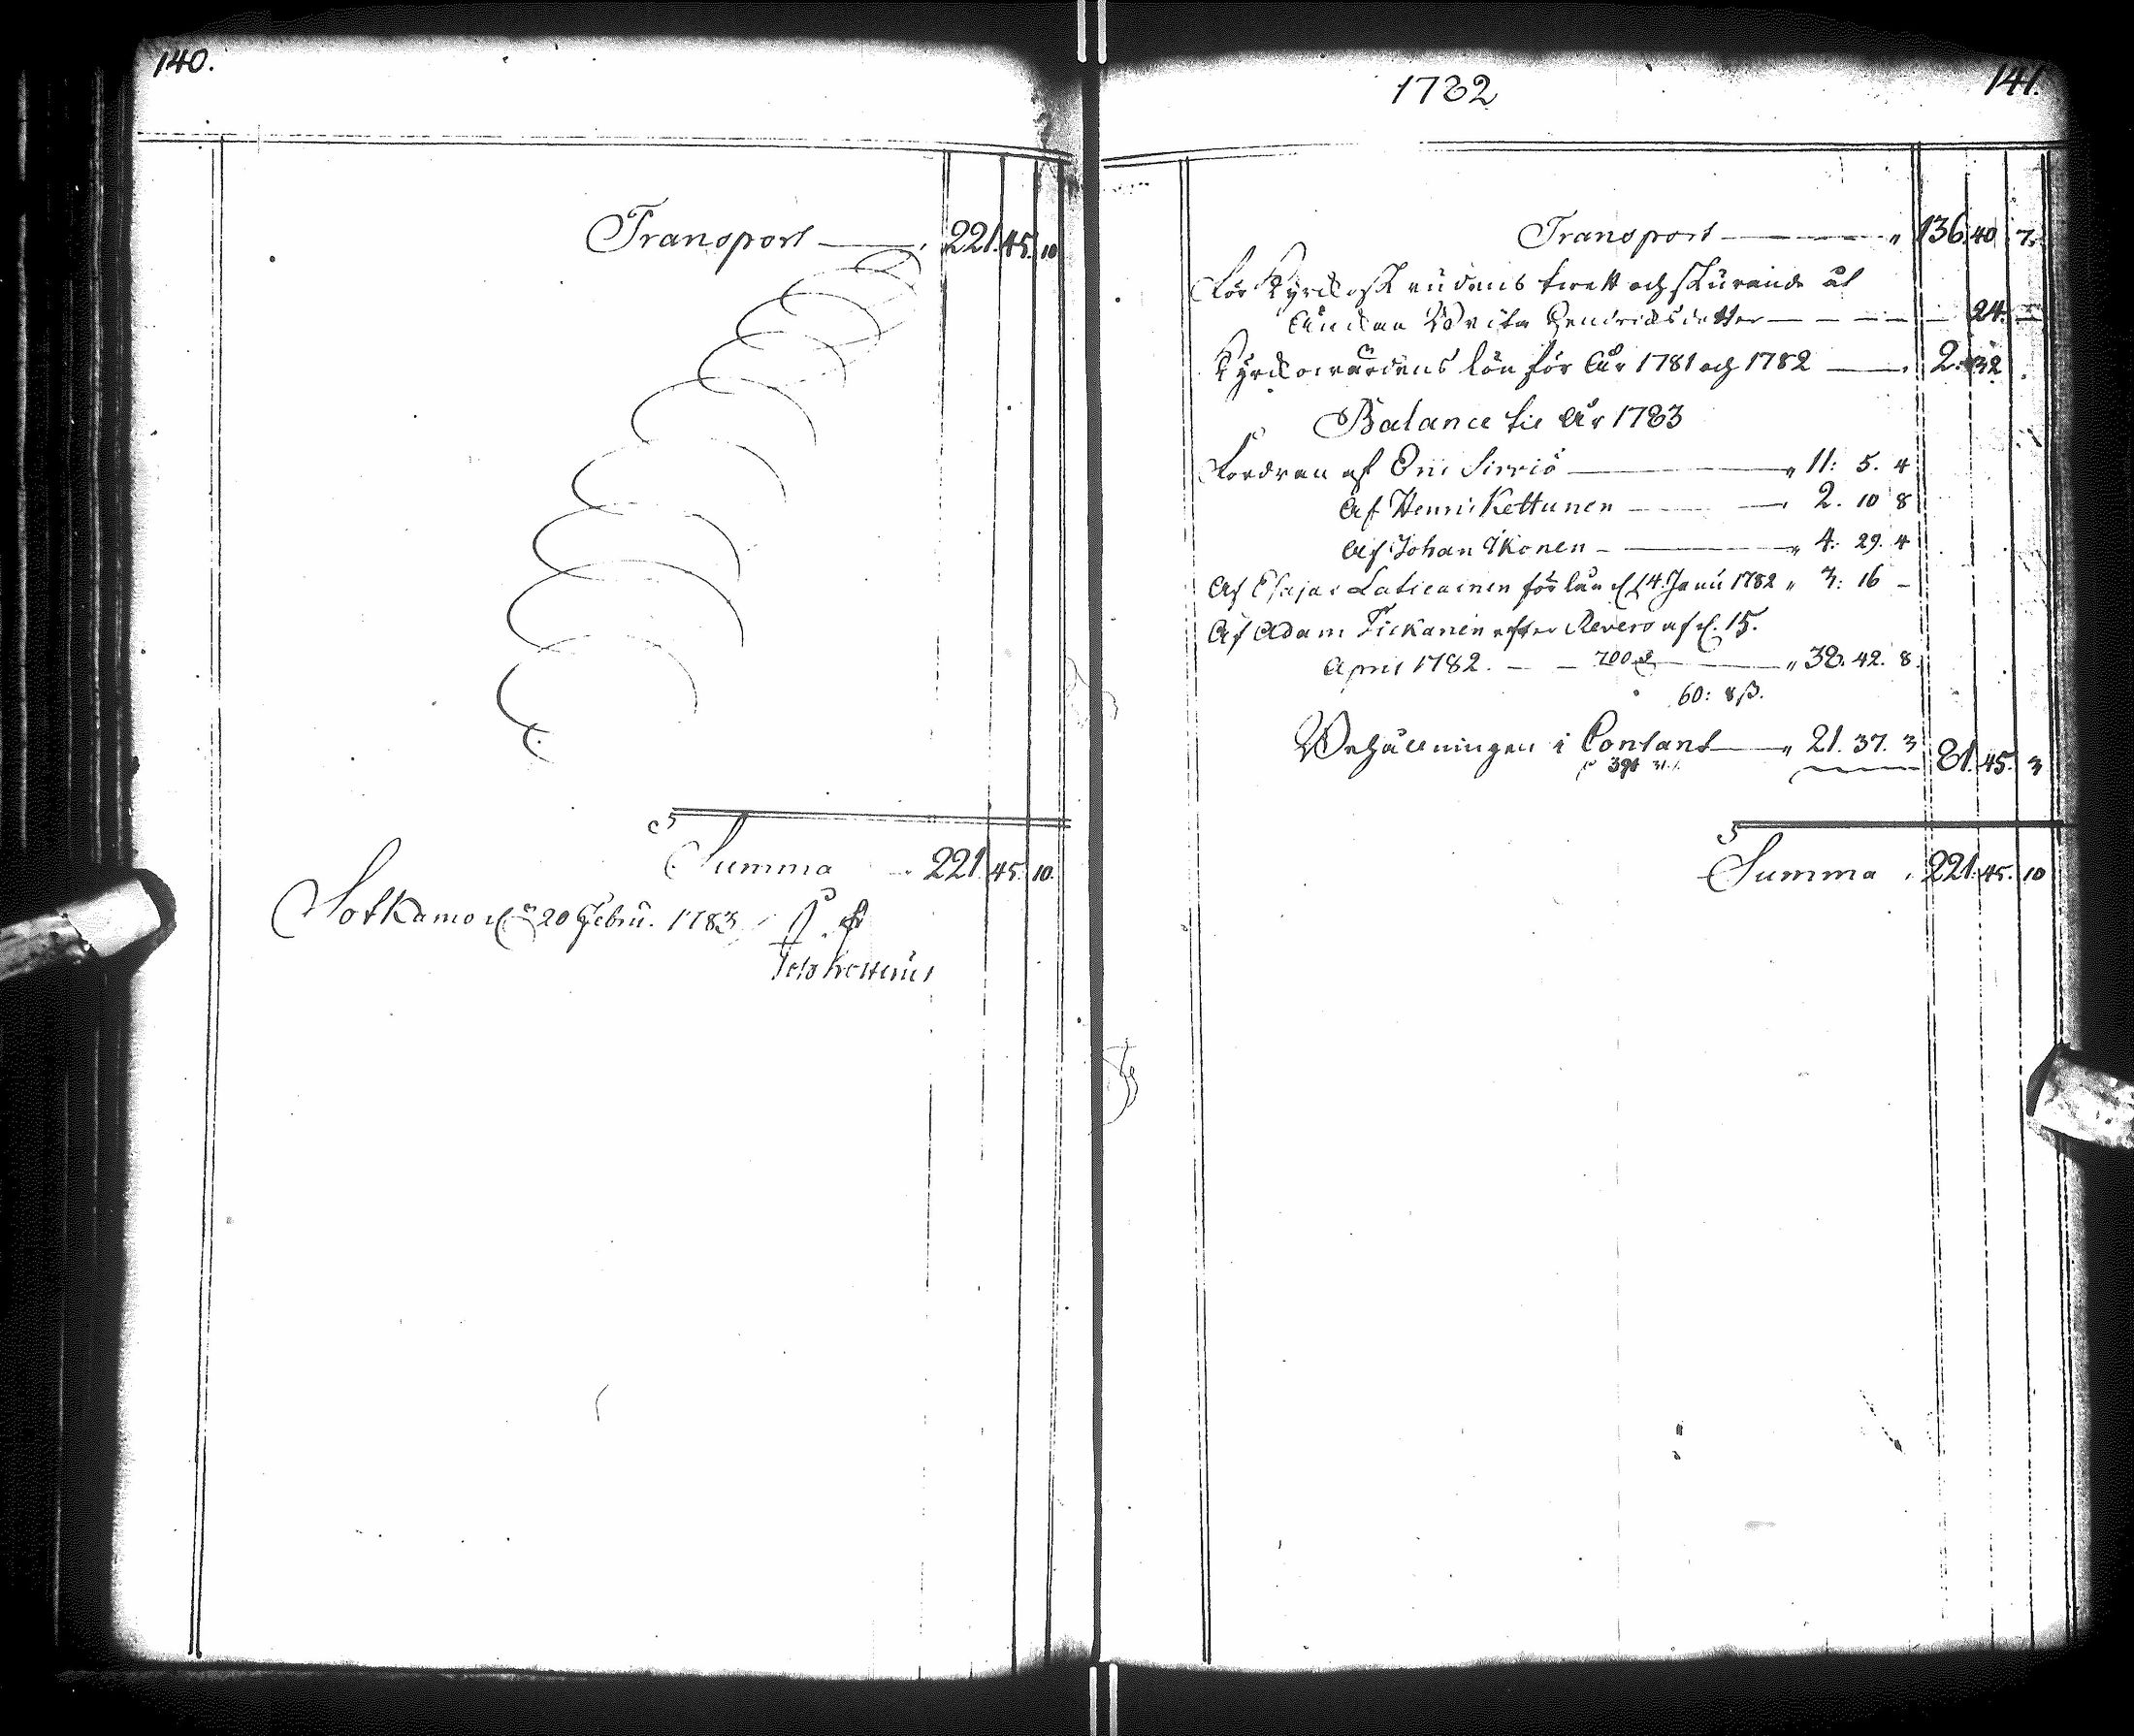 140.
Transport — 221. 45. 10
Summa 221. 45. 10.
Sotkamo d. 20 Febru. 1783
1782
141.
Transport — 136. 40 7.
För Kyrckoskrudens twätt och skurande åt
Änckan Brita Hendricksdotter — 24. —
Kyrckowärdens lön för År 1781 och 1782 — 2. 32
Balance til År 1783
Fordran af Sirviö — 11: 5. 4
Af Henric Kettunen — 2. 10 8
Af Johan Ikonen — 4. 29. 4
Af Esajas för lån d. 14. Janu 1782 3: 16 —
Af Adam Tickanen efter Revers af d. 15.
April 1782. — 700 — 38. 42. 8.
60: 8 ß.
Behållningen i Contant — 21. 37. 3 81. 45. 3
Summa 221. 45. 10